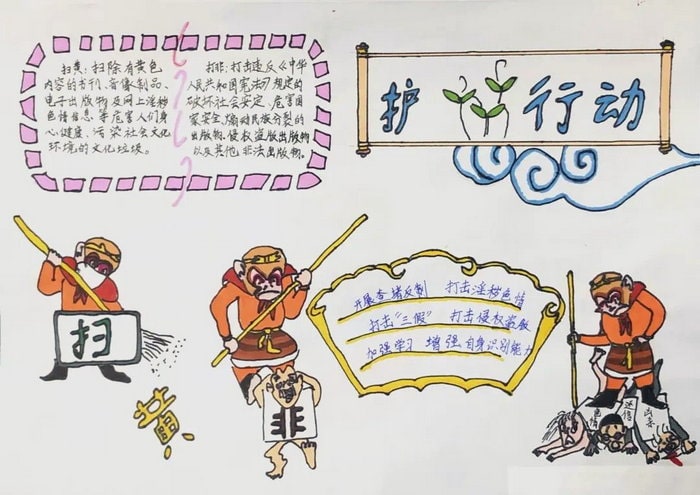 扫黄:扫除有黄色
内容的书刊、音像制品、
电子出版物及网上淫秽
色情信息等危害人们身
心健康、污染社会文化
环境的文化垃圾。
打非:打击违反《中华
人民共和国宪法》规定的
破坏社会安定、危害国
家安全、煽动民族分裂的
出版物,侵权盗版出版物
以及其他非法出版物。
护 行动
扫
黄
非
开展查堵反制 打击淫秽色情
打击“三假” 打击侵权盗版
加强学习 增强自身识别能力
色情
迷信
凶杀